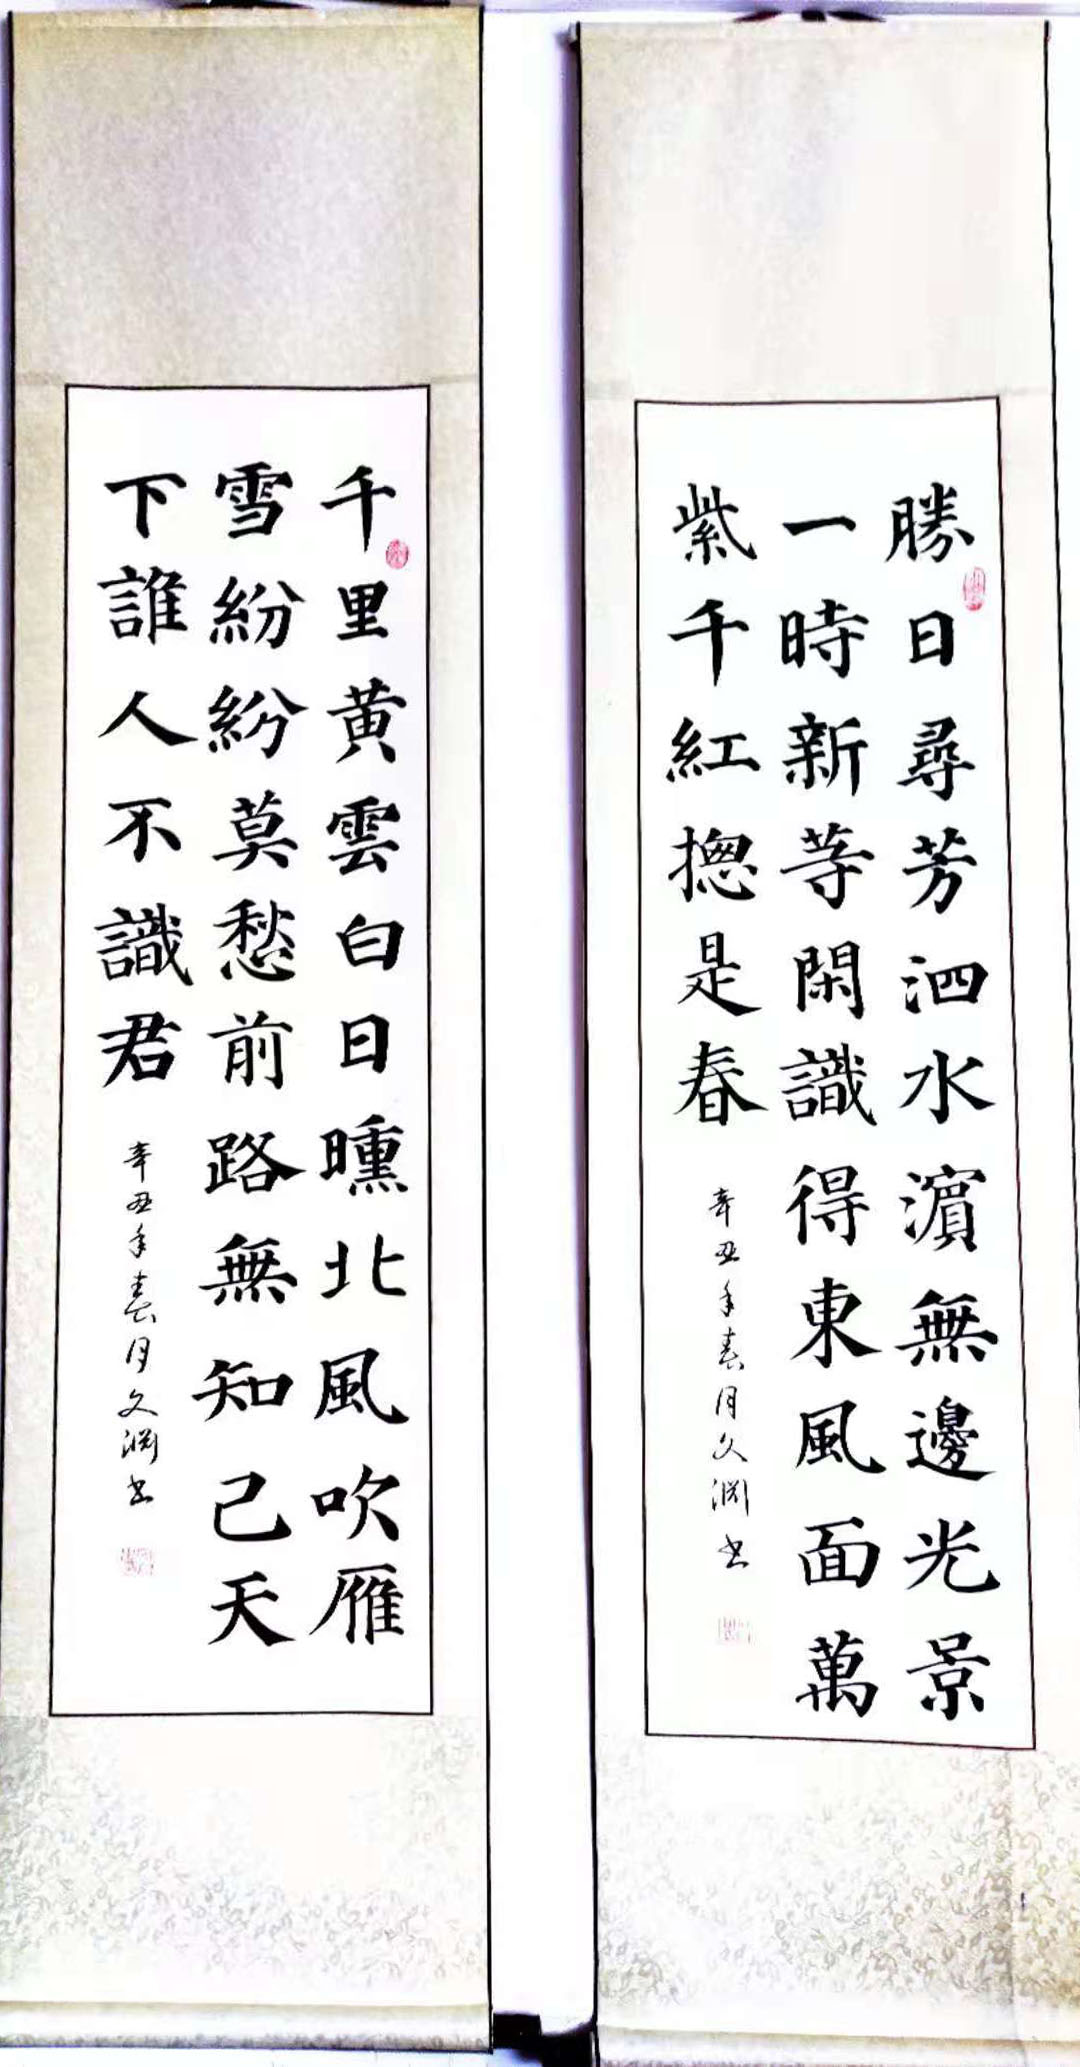 勝日尋芳泗水濵無邊光景
一時新等閑識得東風面萬
紫千紅揔是春
辛丑年春月文淵书
千里黄雲白日曛北風吹雁
雪紛紛莫愁前路無知己天
下誰人不識君
辛丑年春月文淵书